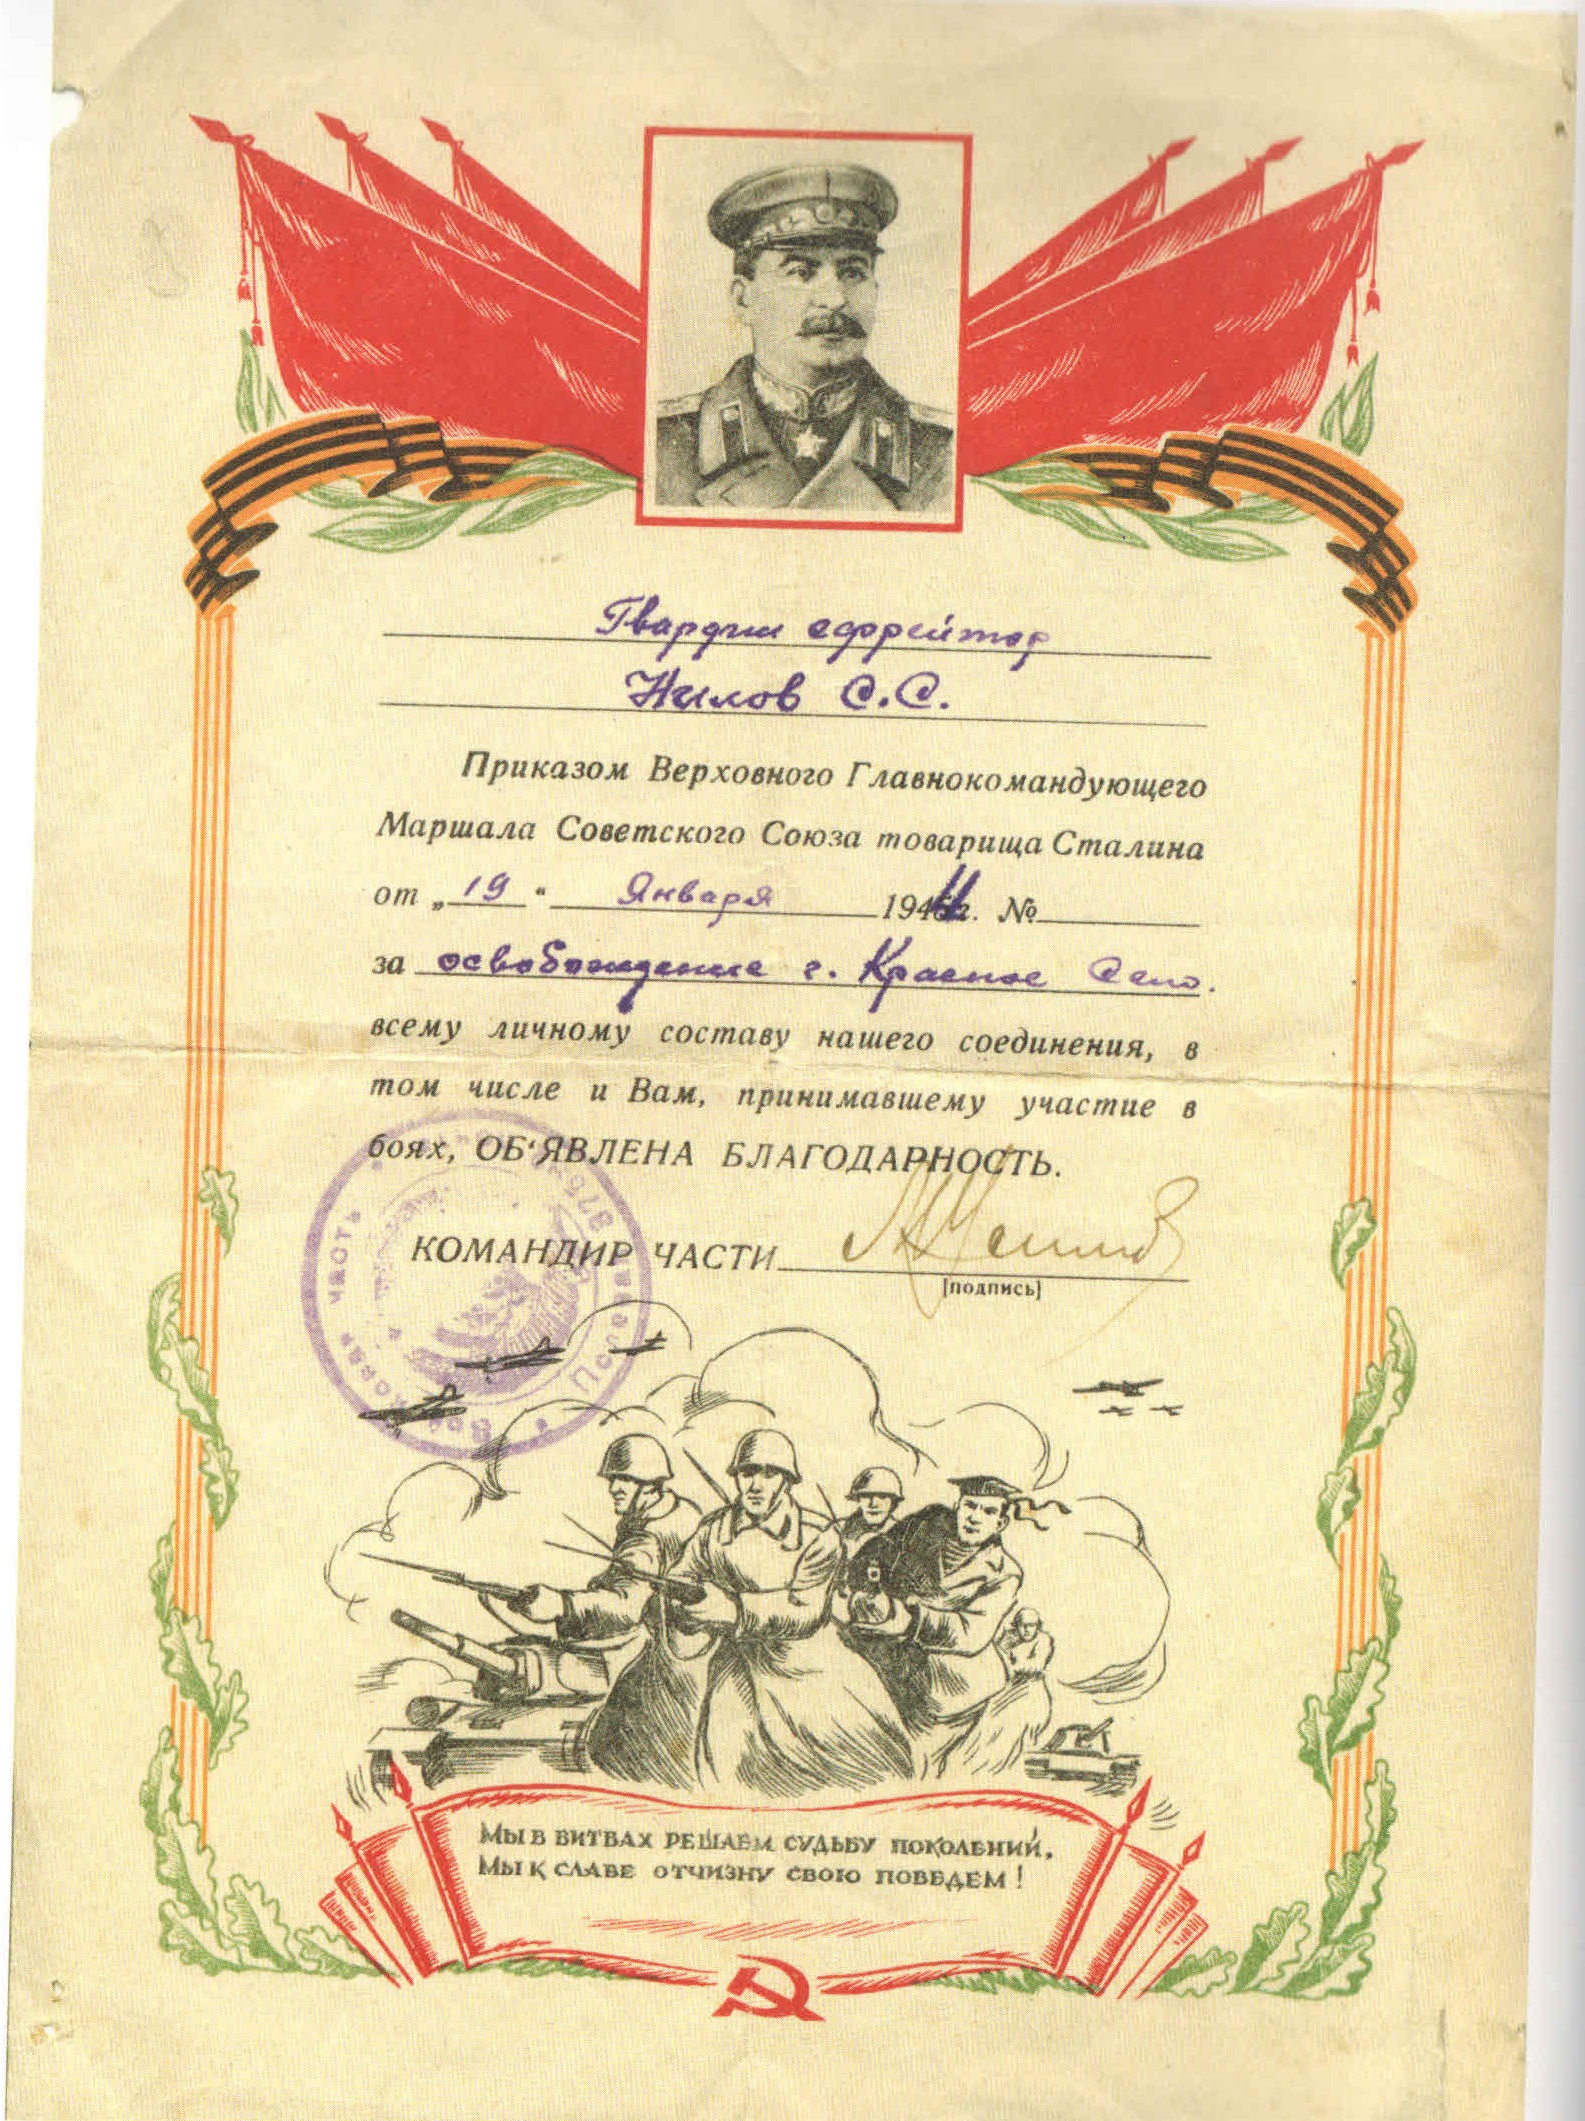 Гвардии ефрейтор
Нилов С.С.
Приказом Верховного Главнокомандующего
Маршала Советского Союза товарища Сталина
от „19“ Января 1944г. №
за освобождение г. Красное Село.
всему личному составу нашего соединения, в
том числе и Вам, принимавшему участие в
боях, ОБ'ЯВЛЕНА БЛАГОДАРНОСТЬ.
КОМАНДИР ЧАСТИ
[подпись]
часть
Полевая
МЫ В БИТВАХ РЕШАЕМ СУДЬБУ ПОКОЛЕНИЙ,
МЫ К СЛАВЕ ОТЧИЗНУ СВОЮ ПОВЕДЕМ!